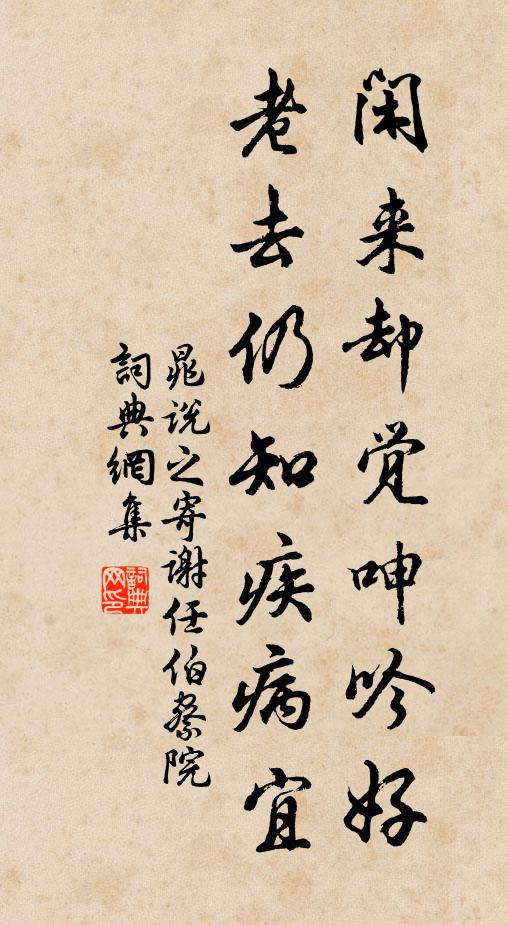 闲来却觉呻吟好
老去仍知疾病宜
晁說之寄謝任伯察院
詞典網集
詞典网印